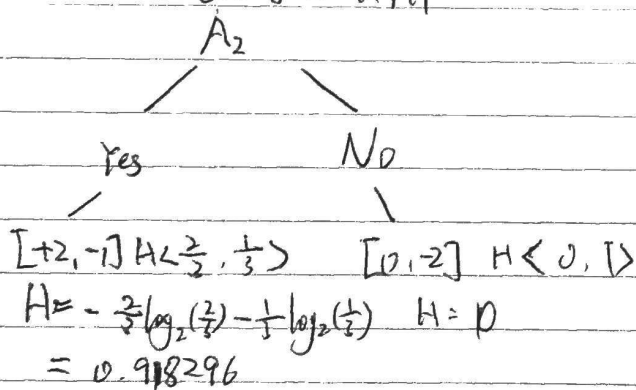 A₂
Yes No
[+2,-1] H<2/3, 1/3> [0,-2] H<0,1>
H = -2/3 log₂(2/3) - 1/3 log₂(1/3) H = 0
= 0.918296